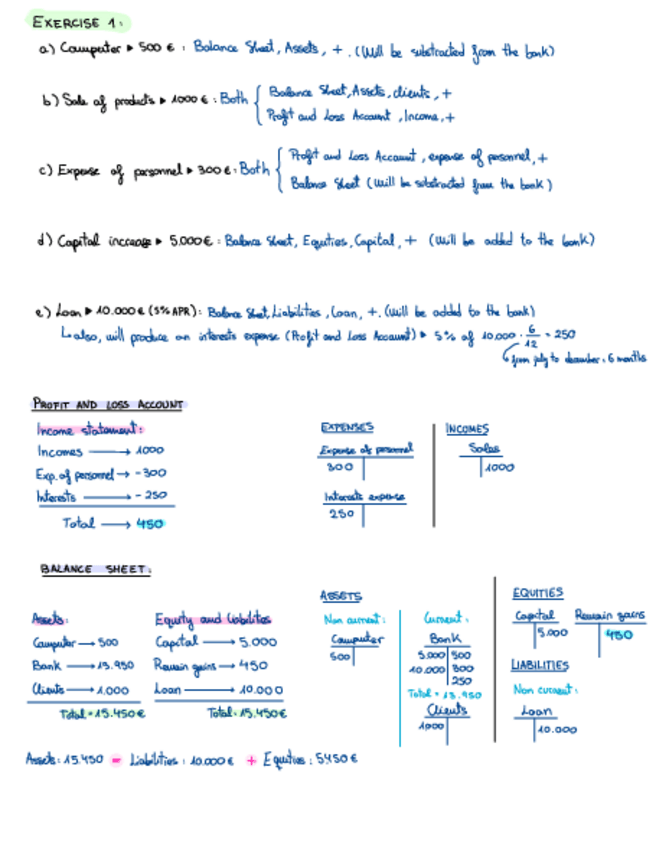 EXERCISE 1:
a) Computer ▸ 500 € : Balance Sheet, Assets, +. (Will be substracted from the bank)
b) Sale of products ▸ 1000 € : Both { Balance Sheet, Assets, clients, +
Profit and Loss Account, Income, +
c) Expense of personnel ▸ 300 € : Both { Profit and Loss Account, expense of personnel, +
Balance Sheet (Will be substracted from the bank)
d) Capital increase ▸ 5.000 € : Balance Sheet, Equities, Capital, + (Will be added to the bank)
e) Loan ▸ 10.000 € (5% APR) : Balance Sheet, Liabilities, Loan, +. (Will be added to the bank)
↳ also, will produce an interests expense (Profit and Loss Account) ▸ 5% of 10.000 · 6/12 = 250
↳ from july to december = 6 months
PROFIT AND LOSS ACCOUNT
Income statement:
Incomes → 1000
Exp. of personnel → -300
Interests → -250
Total → 450
EXPENSES
Expense of personnel
300
Interests expense
250
INCOMES
Sales
1000
BALANCE SHEET:
Assets:
Computer → 500
Bank → 13.950
Clients → 1.000
Total = 15.450 €
Equity and liabilities
Capital → 5.000
Remain gains → 450
Loan → 10.000
Total = 15.450 €
ASSETS
Non current:
Computer
500
Current:
Bank
5.000 500
10.000 300
250
Total = 13.950
Clients
1000
EQUITIES
Capital Remain gains
5.000 450
LIABILITIES
Non current:
Loan
10.000
Assets: 15.450 = Liabilities: 10.000 € + Equities: 5450 €